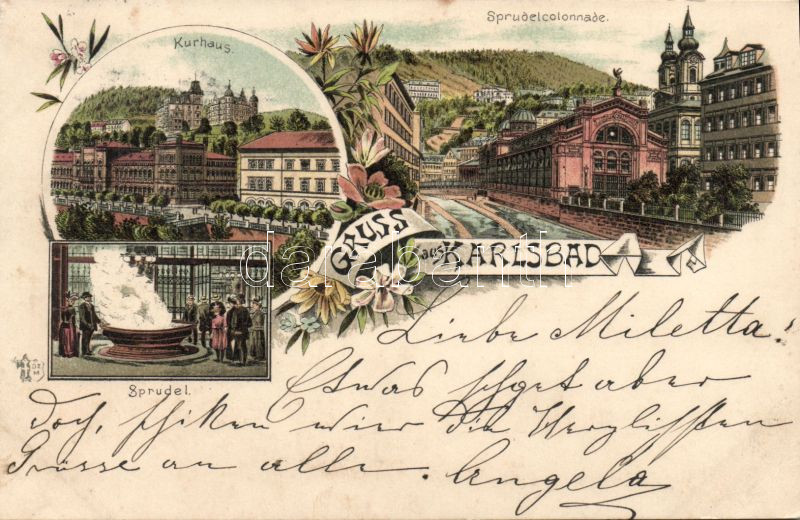 Kurhaus.
Sprudelcolonnade.
GRUSS
aus KARLSBAD
Sprudel.
Liebe Miletta!
Etwas schpet aber
doch, schiken wier die Herzlichsten
Grüsse an alle. Angela
darabanth